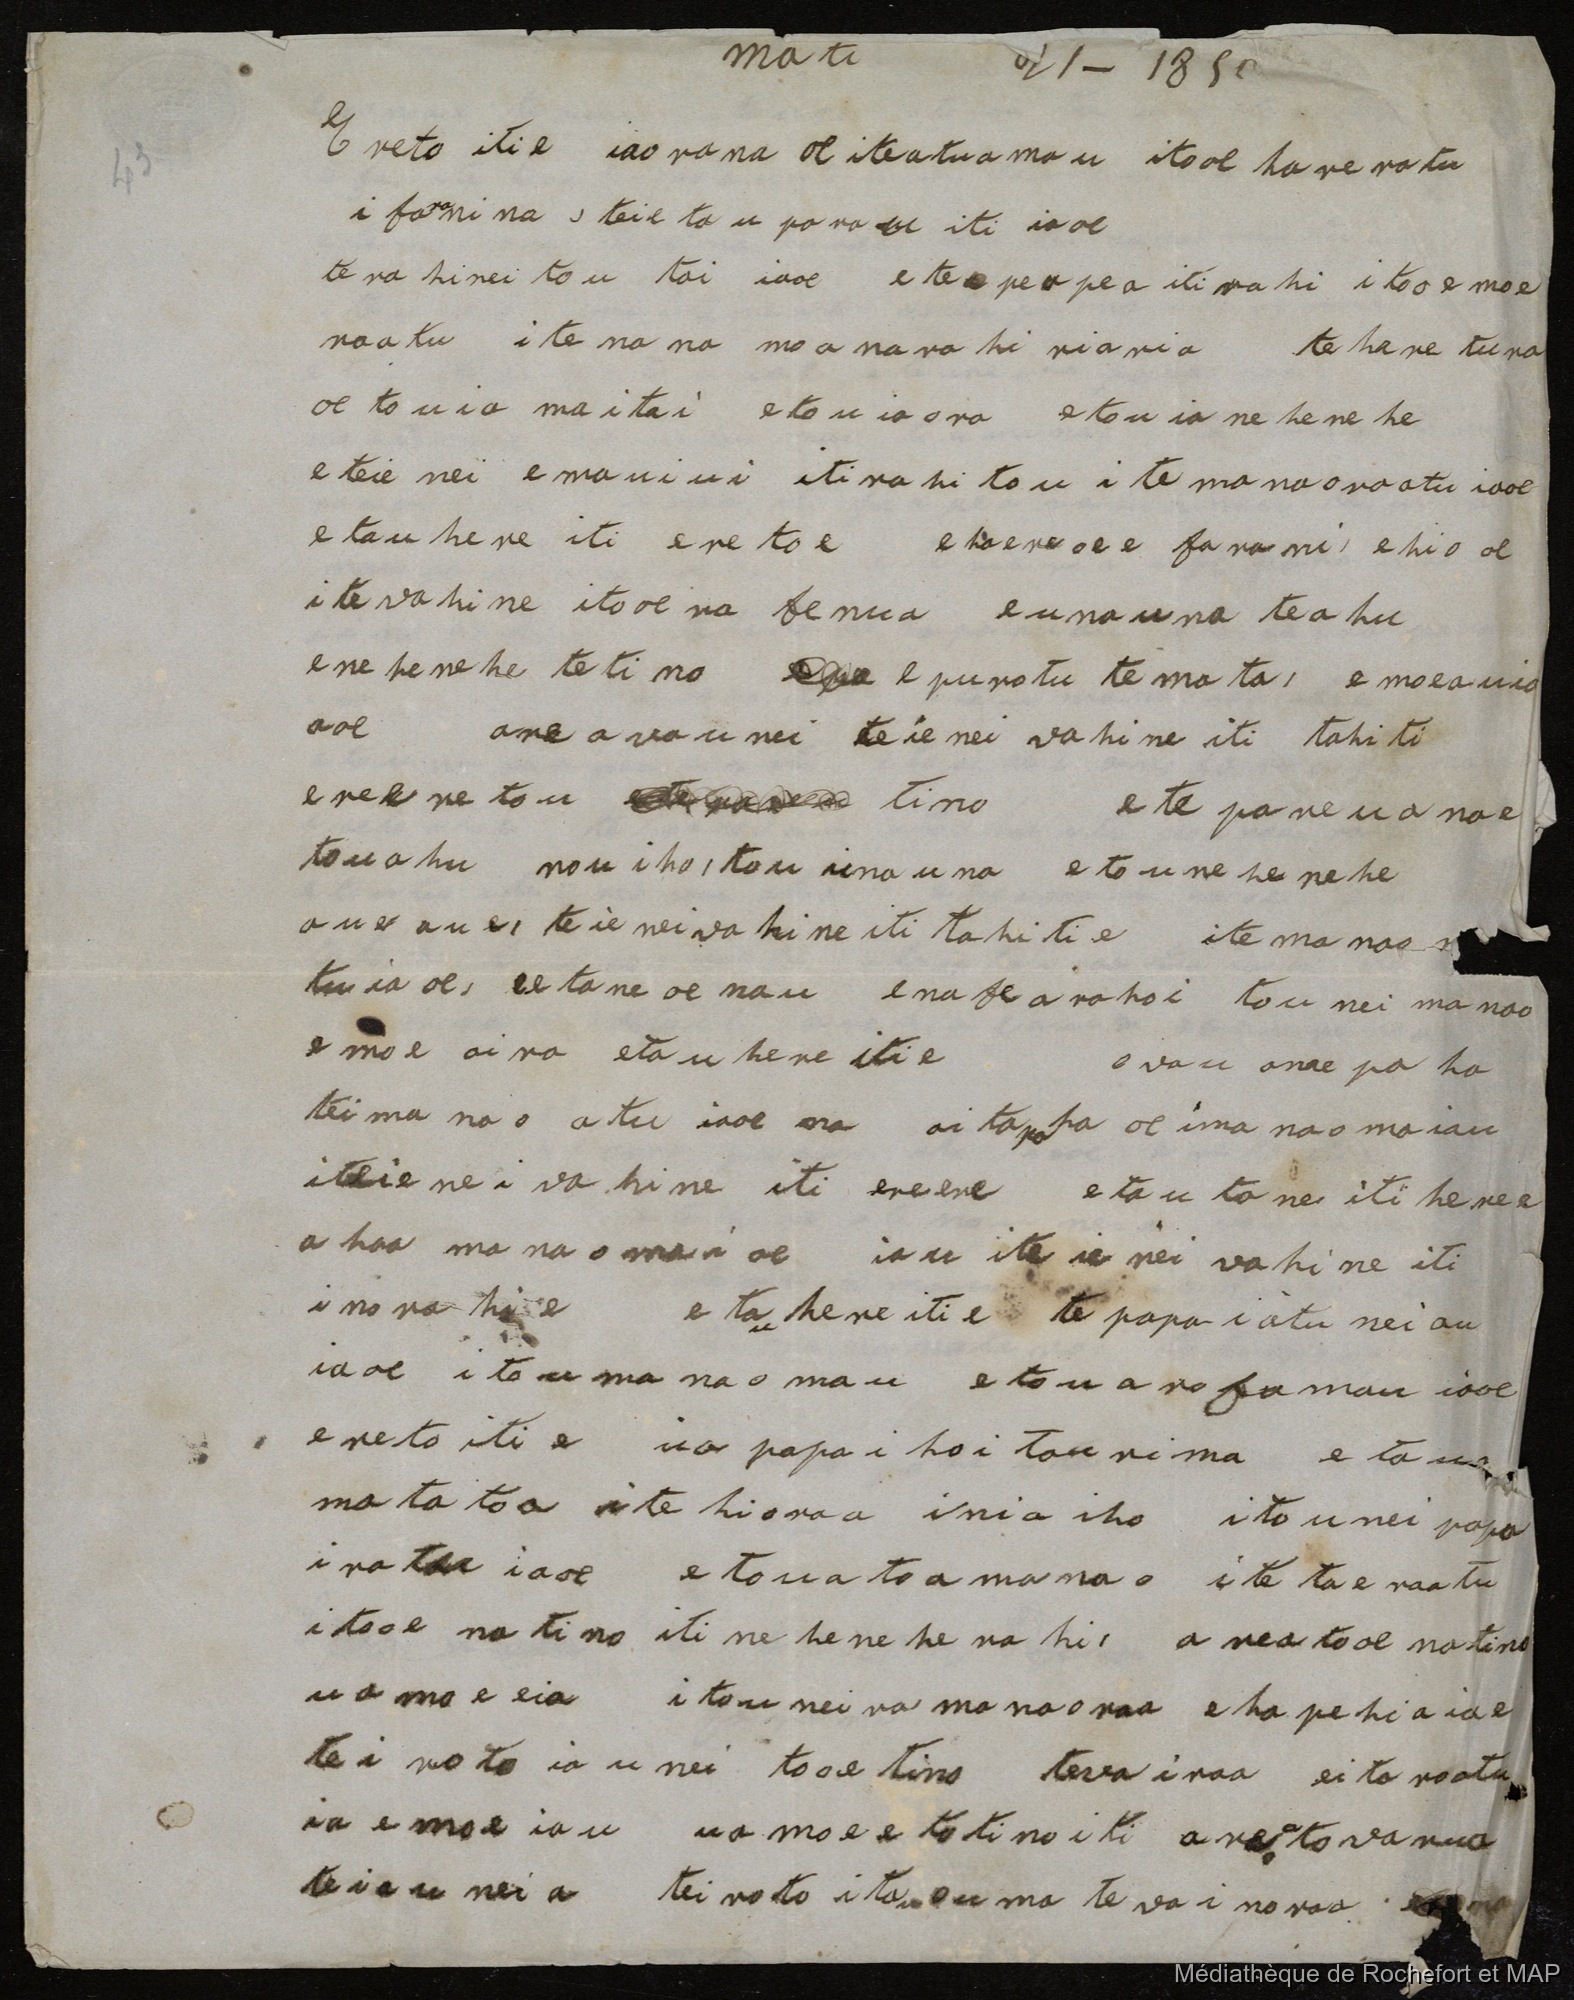 mati 21 – 185
43
E reto iti e iaorana oe iteatuamau itooe hareratu
i faranina, teie ta u parau iti iaoe
terahinei tou tai iaoe e te peapea iti rahi i tooe moe
raatu i te na na moanarahi riaria te here tura
oe to u ia maitai e to u iaora e to u ia nehenehe
e teie nei e mauiui iti rahi tou i te manaoraatu iaoe
e tau here iti e reto e e haere oe e farani, e hio oe
i te vahine itooe ra fenua e unauna te ahu
e nehenehe te tino e purotu te mata, e moeauia
aoe area vau nei teienei vahine iti tahiti
ereere tou tino e te pareu anae
tou ahu nou iho, tou unauna e tou nehenehe
aue aue, teienei vahine iti tahiti e ite manao
tu iaoe, e tane oe nau e nafea rahoi tou nei manao
e moe aira e tau here iti e o vau anae paha
tei manao atu iaoe na aita paha oe i manao maiau
i teie nei vahine iti ereere e tau tane iti here e
ahaa manao mai oe iau ite ie nei vahine iti
ino rahi e e tau here iti e te papai atu nei au
iaoe i to u manao mau e to u arofa mau iaoe
e reto iti e ia papai hoi tau rima e tau
mata toa i te hioraa i nia iho i to u nei papa
iratu iaoe e to u a toa manao i te tae raatu
i tooe na tino iti nehenehe rahi, area tooe na tino
ua moe eia i tou nei ra manaoraa e hape hia iae
te i roto iau nei tooe tino tevairaa eita raatu
ia e moe iau ua moe e to tino iti area to varua
te iau nei a tei roto i tau ouma te vai noraa
Médiathèque de Rochefort et MAP